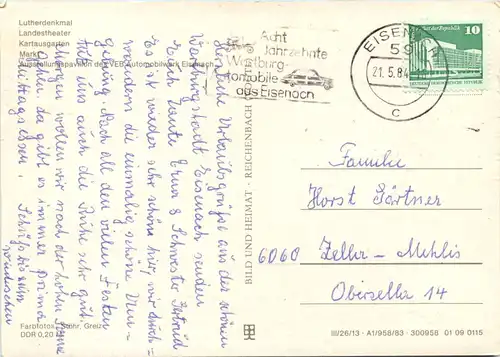 Lutherdenkmal
Landestheater
Kartausgarten
Markt
Ausstellungspavillon des VEB Automobilwerk Eisenach
Acht
Jahrzehnte
Wartburg-
tomobile
aus Eisenach
EISENACH
59
21.5.84
c
10
DEUTSCHE DEMOKRATISCHE REPUBLIK
Herzliche Urlaubsgrüße aus der schönen
Wartburgstadt Eisenach senden
Euch Tante Erna & Schwester Astrid
Es ist wieder sehr schön hier, wir durch=
wandern die einmalig schöne Um=
gebung. Nach all den vielen Festen
tut uns auch die Ruhe sehr gut.
Morgen wollen wir nach der hohen Sonne
da gibt es immer prima
Mittagessen.
BILD UND HEIMAT · REICHENBACH
Familie
Horst Gärtner
6060 Zella-Mehlis
Oberzella 14
Farbfotos: Mohr, Greiz
DDR 0,20
III/26/13 · A1/958/83 · 300958 01 09 0115